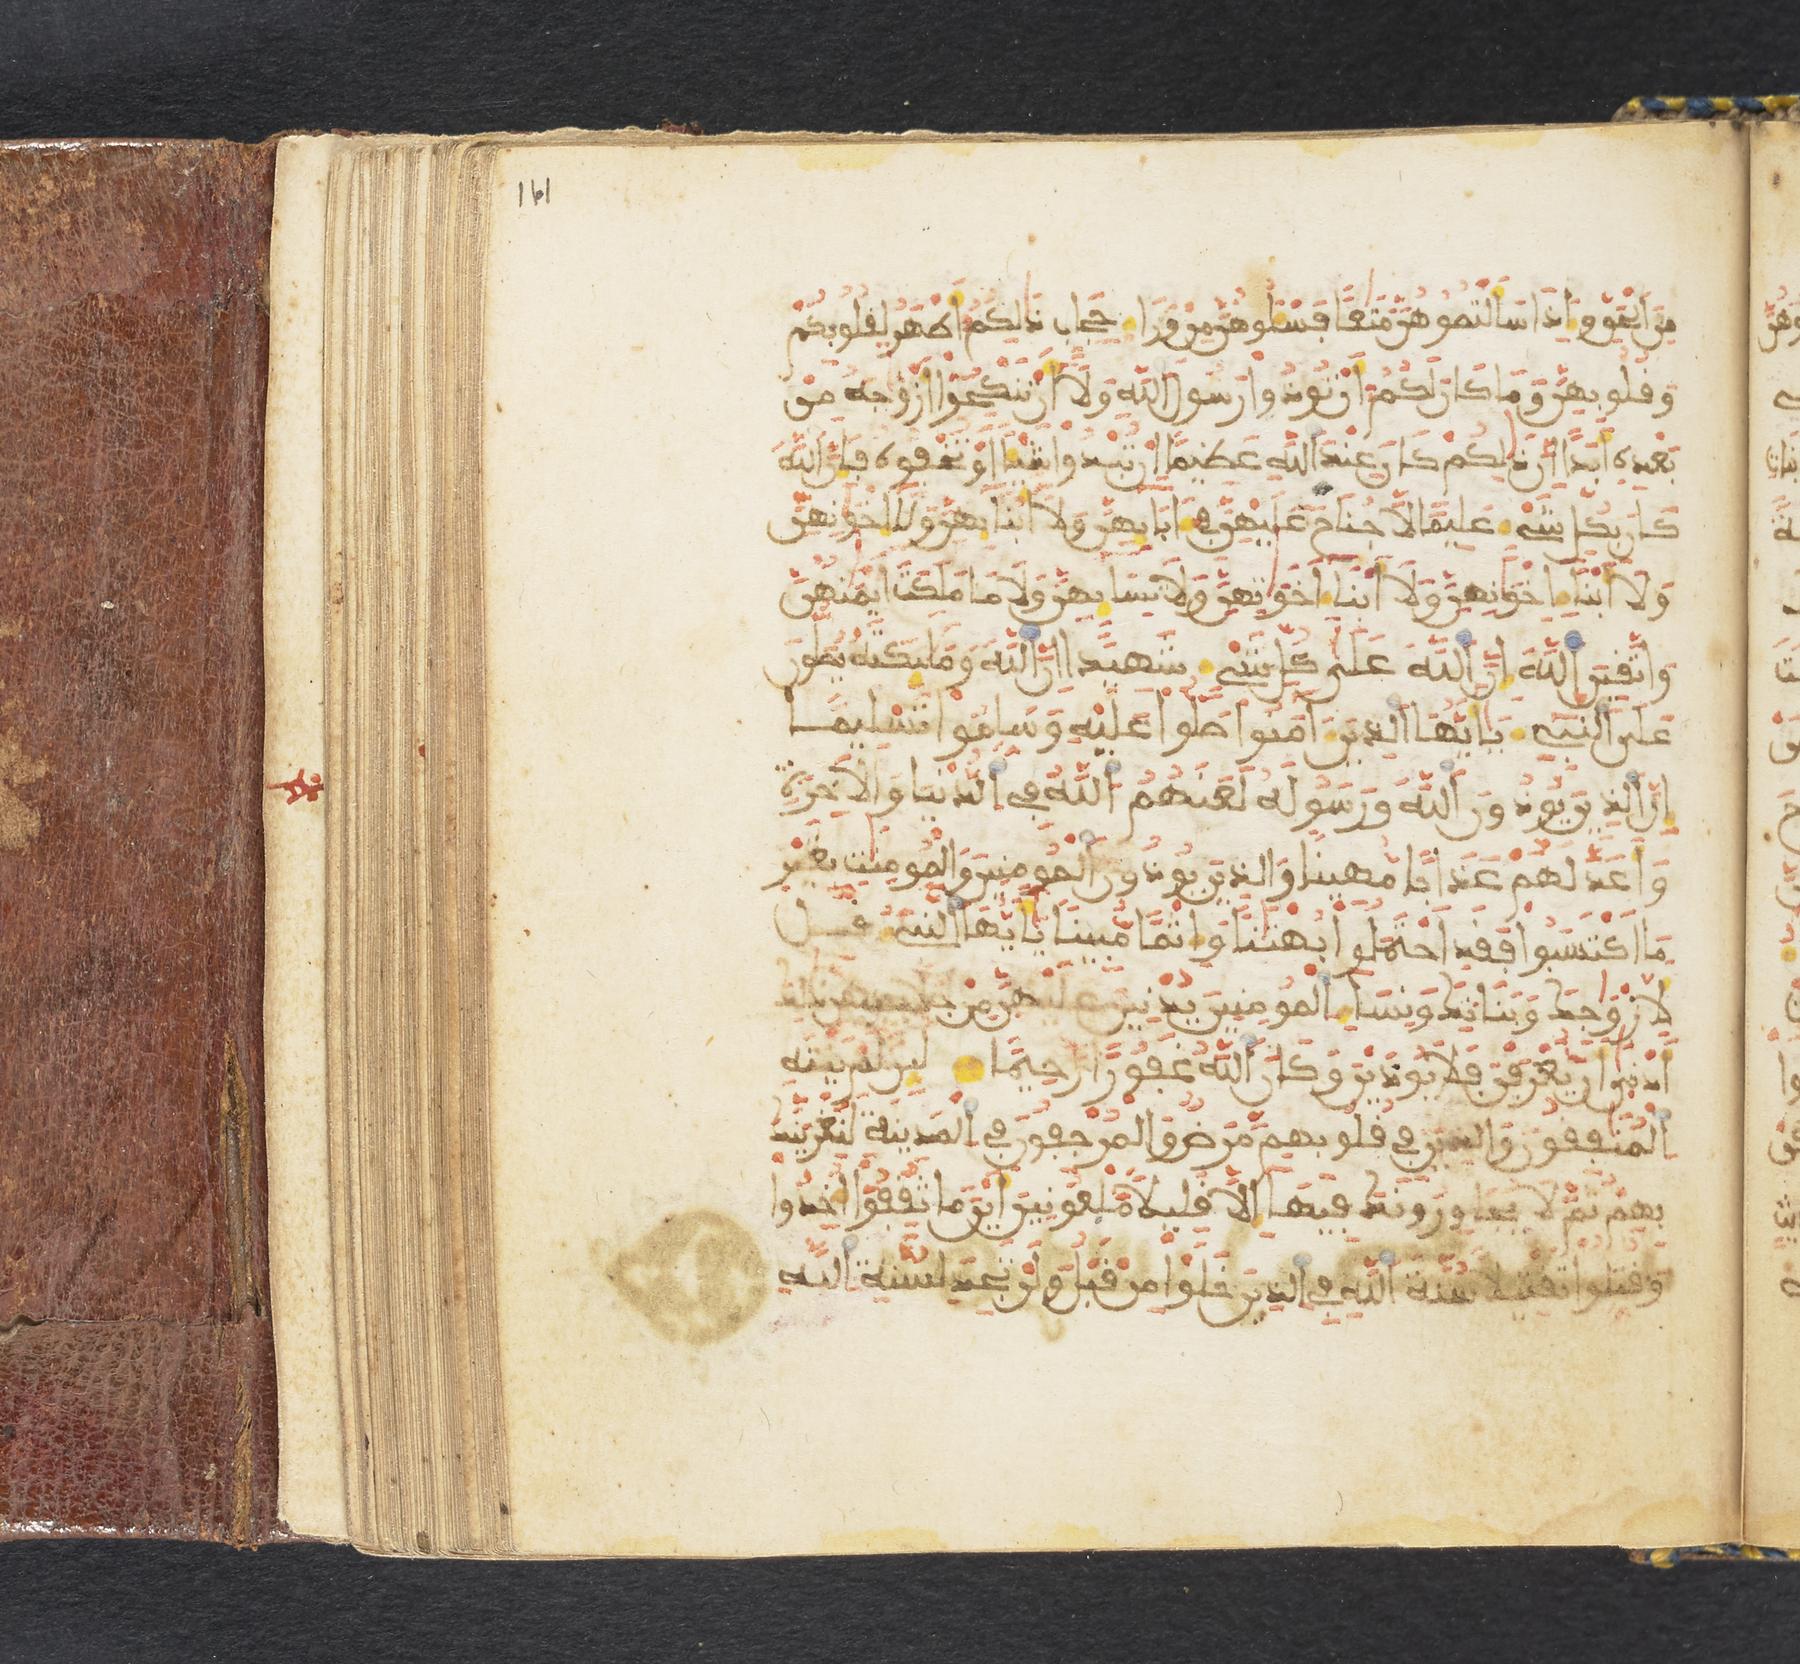 161
من الحق وإذا سألتموهن متعا فسلوهن من ورا حجاب ذلكم أطهر لقلوبكم
وقلوبهن وما كان لكم أن توذوا رسول الله ولا أن تنكحوا أزوجه من
بعده أبدا إن ذلكم كان عند الله عظيما إن تبدوا شيا أو تخفوه فإن الله
كان بكل شي عليما لا جناح عليهن في ابايهن ولا أبنايهن ولا إخونهن
ولا أبنا إخوانهن ولا أبنا أخوتهن ولا نسايهن ولا ما ملكت أيمنهن
واتقين الله إن الله على كل شي شهيدا إن الله ومليكته يصلون
على النبي يايها الذين آمنوا صلوا عليه وسلموا تسليما
إن الذين يوذون الله ورسوله لعنهم الله في الدنيا والآخرة
وأعد لهم عذابا مهينا والذين يوذون المومنين والمومنت بغير
ما اكتسبوا فقد احتملوا بهتنا وإثما مبينا يايها النبي قل
لأزوجك وبناتك ونسا المومنين يدنين عليهن من جلبيبهن ذلك
أدنى أن يعرفن فلا يوذين وكان الله غفورا رحيما لين لم ينته
المنفقون والذين في قلوبهم مرض والمرجفون في المدينة لنغرينك
بهم ثم لا يجاورونك فيها إلا قليلا ملعونين أين ما ثقفوا أخذوا
وقتلوا تقتيلا سنة الله في الذين خلوا من قبل ولن تجد لسنة الله